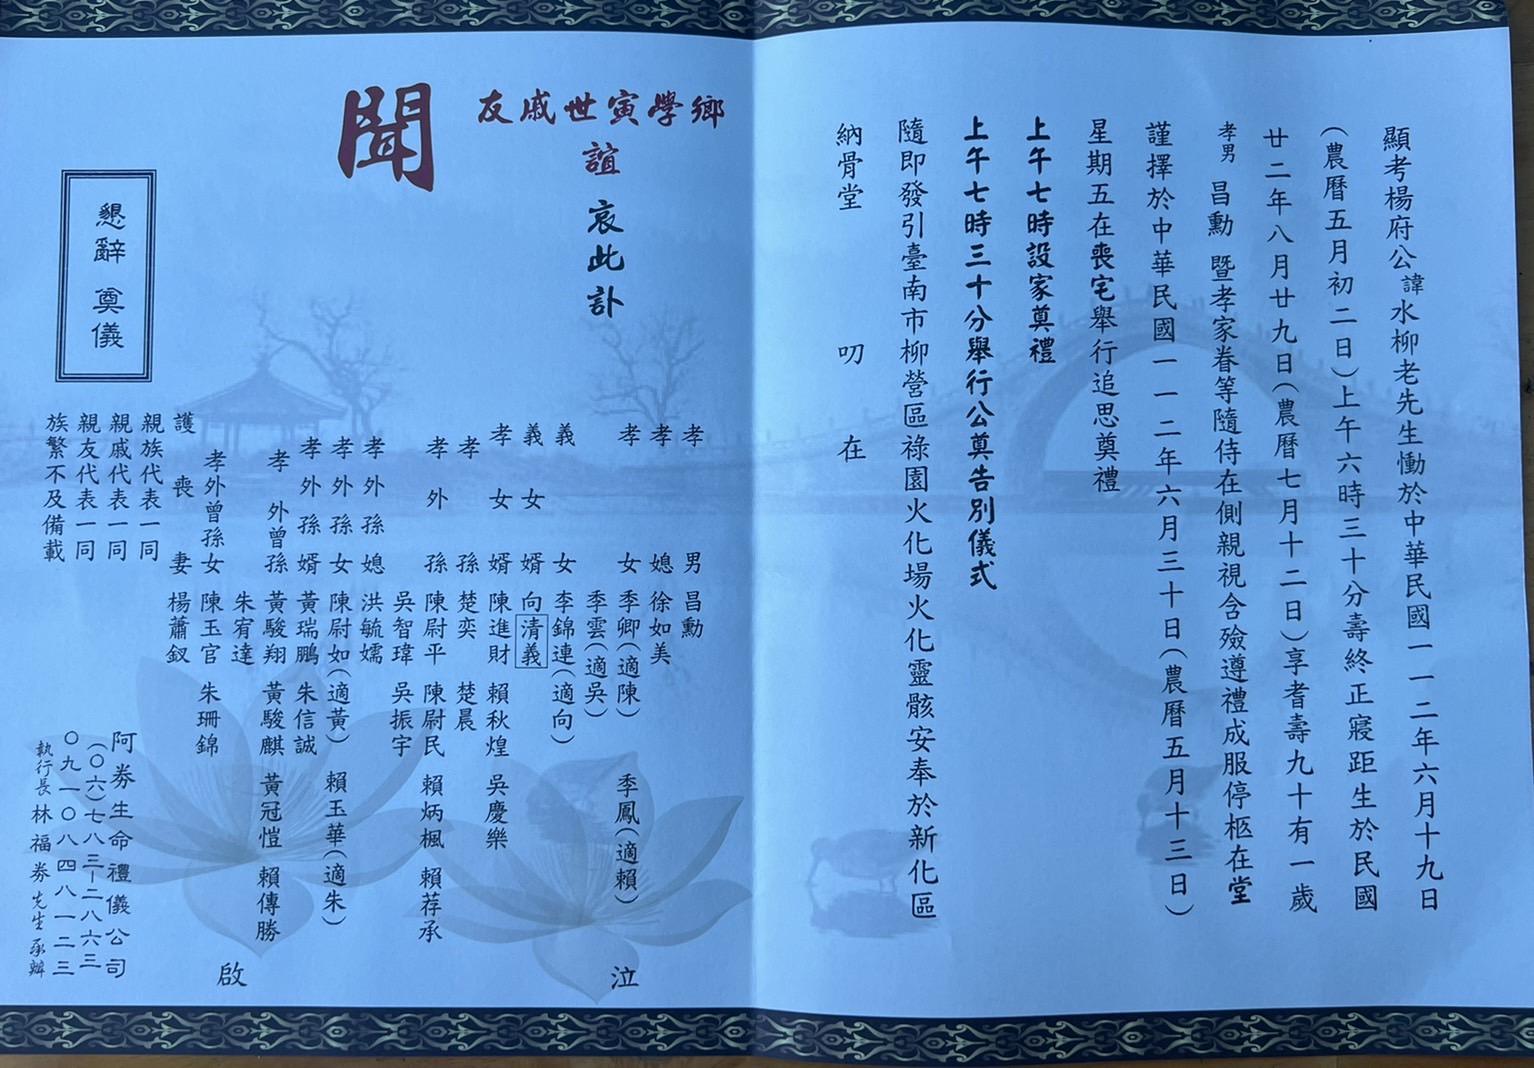 顯考楊府公諱水柳老先生慟於中華民國一一二年六月十九日
(農曆五月初二日)上午六時三十分壽終正寢距生於民國
廿二年八月廿九日(農曆七月十二日)享耆壽九十有一歲
孝男 昌勳 暨孝家眷等隨侍在側親視含殮遵禮成服停柩在堂
謹擇於中華民國一一二年六月三十日(農曆五月十三日)
星期五在喪宅舉行追思奠禮
上午七時設家奠禮
上午七時三十分舉行公奠告別儀式
隨即發引臺南市柳營區祿園火化場火化靈骸安奉於新化區
納骨堂 叨 在
鄉學寅世戚友
誼 哀此訃
聞
孝男 昌勳
孝媳 徐如美
孝女 季卿(適陳) 季鳳(適賴)
季雲(適吳)
義女 李錦連(適向)
義女婿 向清義
孝女婿 陳進財 賴秋煌 吳慶樂
孝孫 楚奕 楚晨
孝外孫 陳尉平 陳尉民 賴炳楓 賴荐承
吳智瑋 吳振宇
孝外孫媳 洪毓嬬
孝外孫女 陳尉如(適黃) 賴玉華(適朱)
孝外孫婿 黃瑞鵬 朱信誠
孝外曾孫 黃駿翔 黃駿麒 黃冠愷 賴傳勝
朱宥達
孝外曾孫女 陳玉官 朱珊錦
護喪妻 楊蕭釵
親族代表一同
親戚代表一同
親友代表一同
族繁不及備載
泣
啟
懇辭 奠儀
阿劵生命禮儀公司
(〇六)七八三-二八六三
〇九一〇八四八一二三
執行長 林福劵 先生承辦